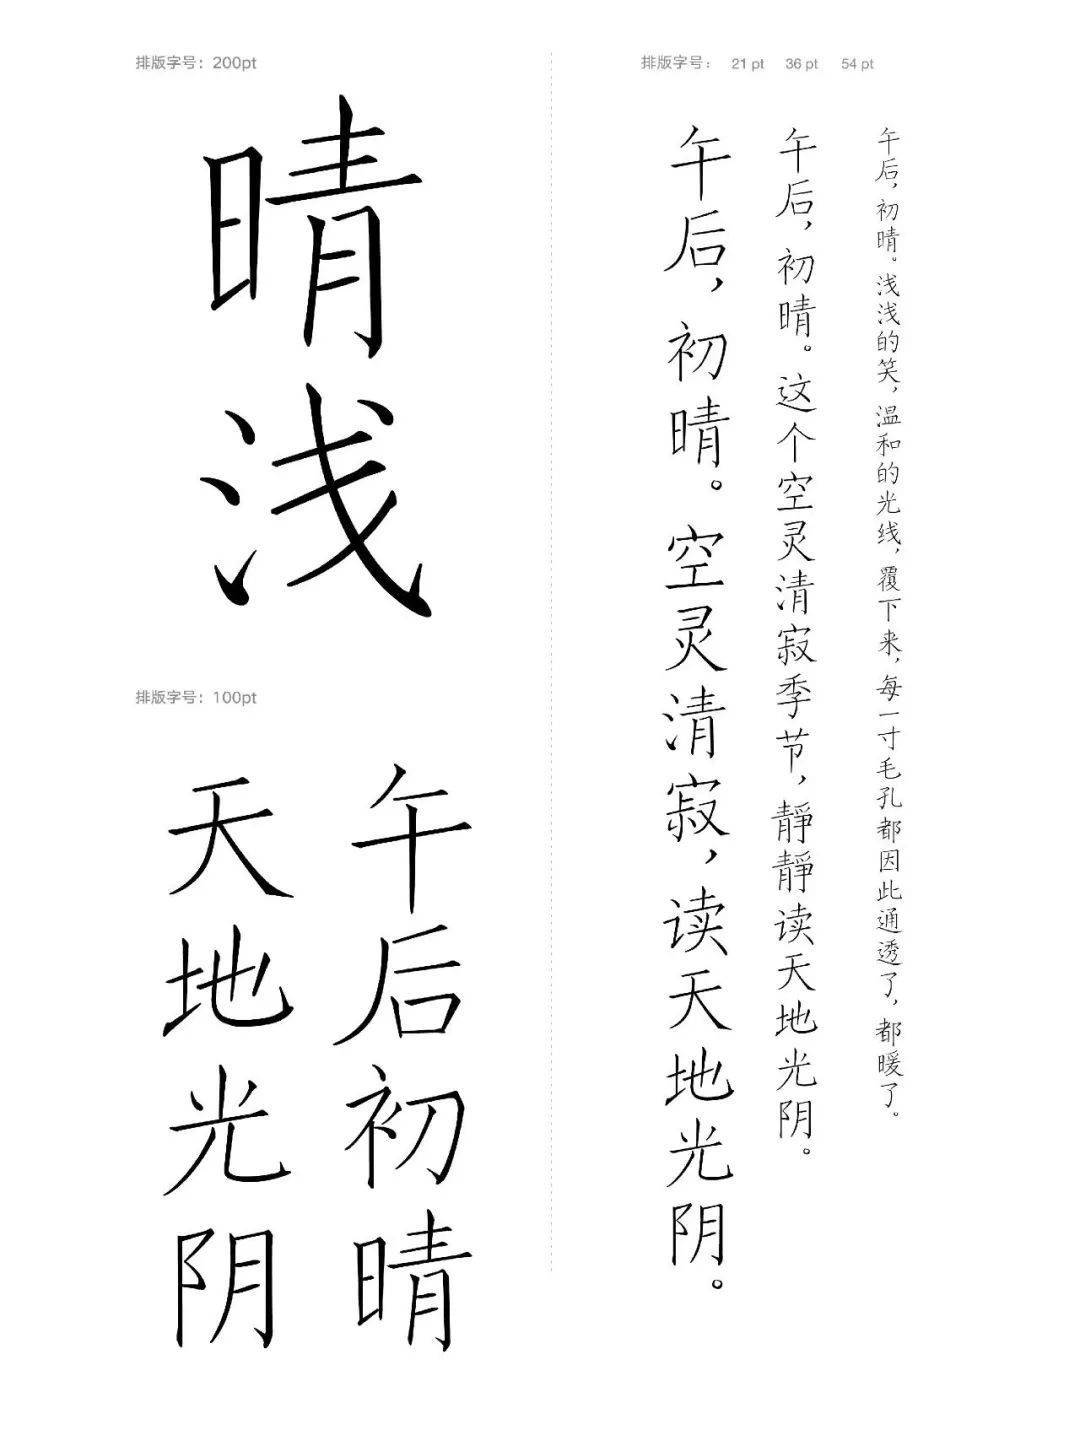 排版字号：200pt
晴浅
排版字号：100pt
午后初晴
天地光阴
排版字号： 21 pt 36 pt 54 pt
午后，初晴。浅浅的笑，温和的光线，覆下来，每一寸毛孔都因此通透了，都暖了。
午后，初晴。这个空灵清寂季节，靜靜读天地光阴。
午后，初晴。空灵清寂，读天地光阴。